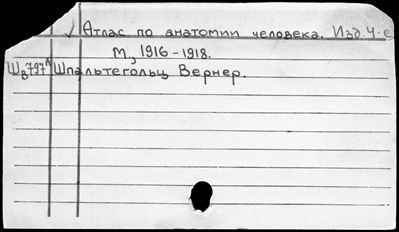 Атлас по анатомии человека. Изд. 4-е
М, 1916-1918.
Шв797 Шпальтегольц Вернер.